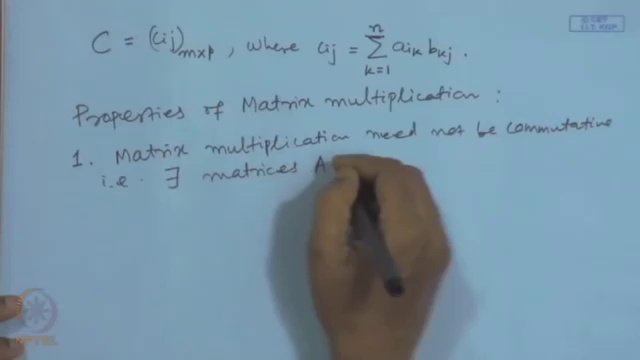 C = (cij)m×p, where cij = n∑k=1 aik bkj.
Properties of Matrix multiplication :
1. Matrix multiplication need not be commutative
i.e. ∃ matrices A
NPTEL